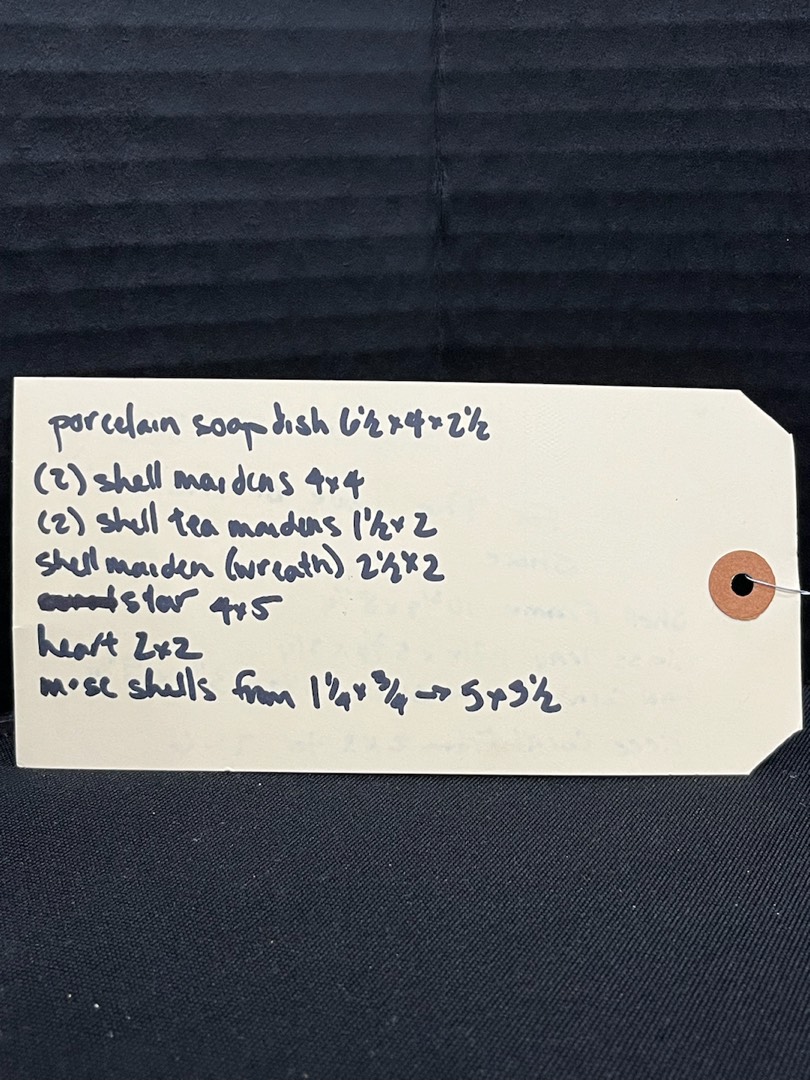 porcelain soap dish 6½ x 4 x 2½
(2) shell maidens 4x4
(2) shell tea maidens 1½ x 2
shell maiden (wreath) 2½ x 2
star 4x5
heart 2x2
misc shells from 1¼ x ¾ → 5 x 3½